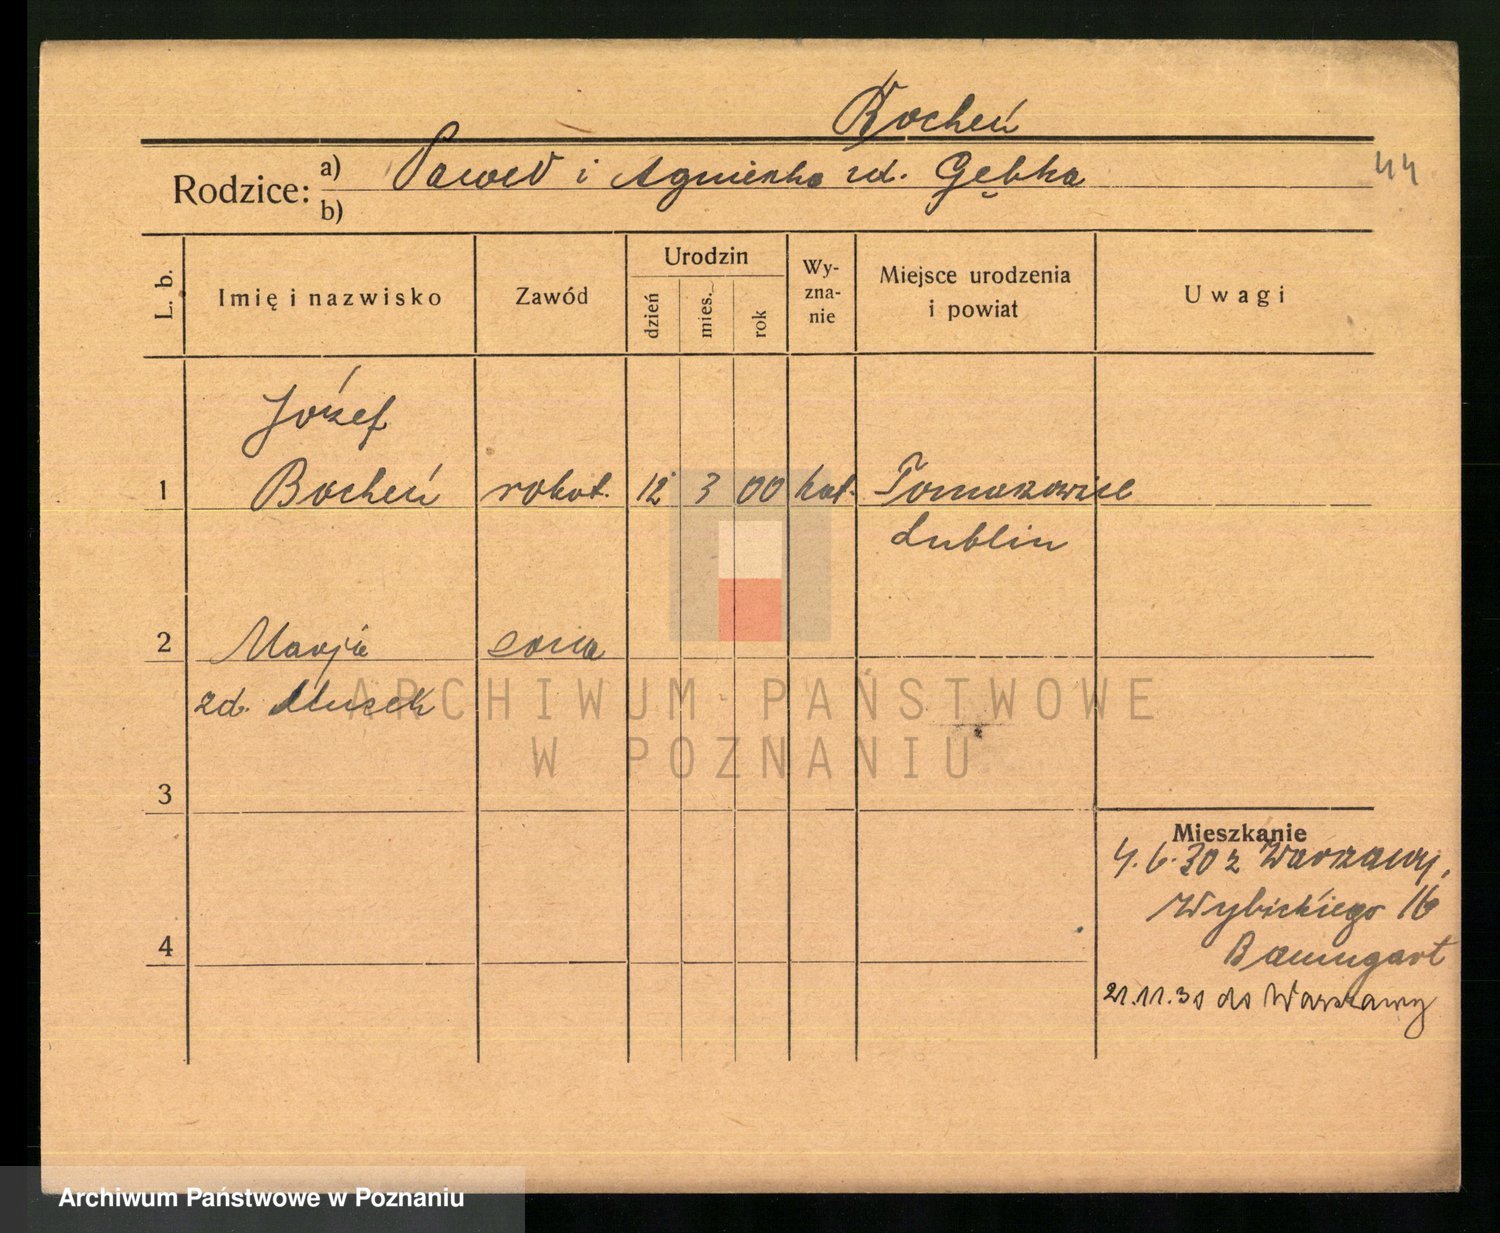 Bocheń
44
Rodzice: a) Paweł i Agnieszka zd. Gębka
b)
L. b. Imię i nazwisko Zawód Urodzin dzień mies. rok Wy-zna-nie Miejsce urodzenia i powiat Uwagi
Józef
1 Bocheń robot. 12 3 00 kat. Tomaszowice
Lublin
2 Marja żona
zd.
3
Mieszkanie
4.6.30 z Warszawy,
Wybickiego 16
4
Baumgart
21.11.30 do Warszawy
ARCHIWUM PAŃSTWOWE
W POZNANIU
Archiwum Państwowe w Poznaniu